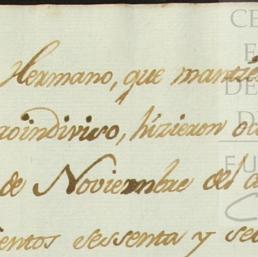 Hermano, que mantie
roindiviso, hizieron o
de Noviembre del a
ientos sessenta y se